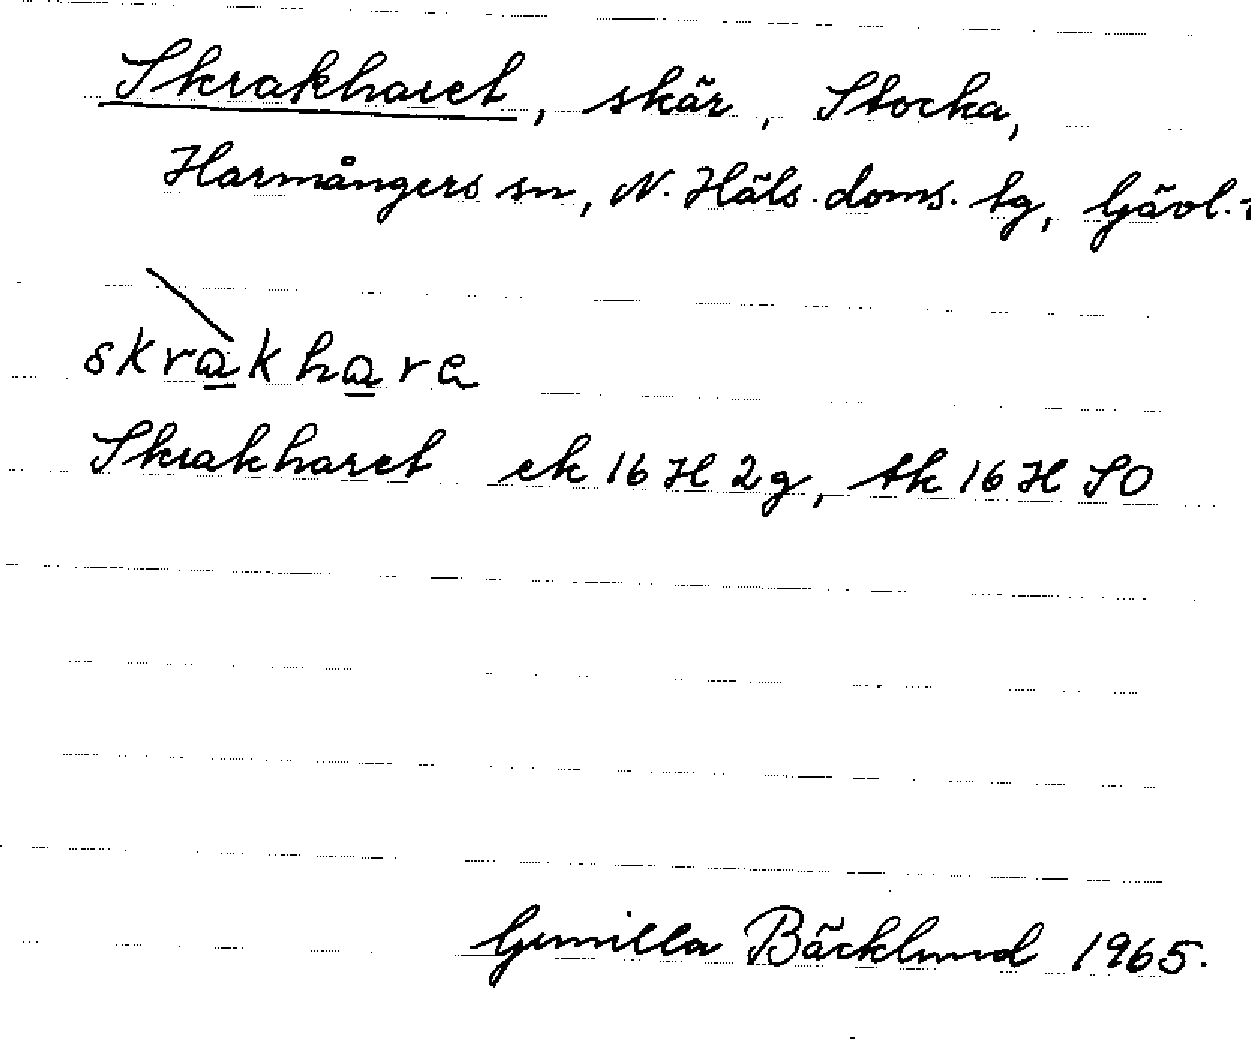 Skrakharet, skär, Stocka,
Harmångers sn, N. Häls. doms. tg, Gävl.
skràkhara
Skrakharet ek 16 H 2 g, tk 16 H SO
Gunilla Bäcklund 1965.